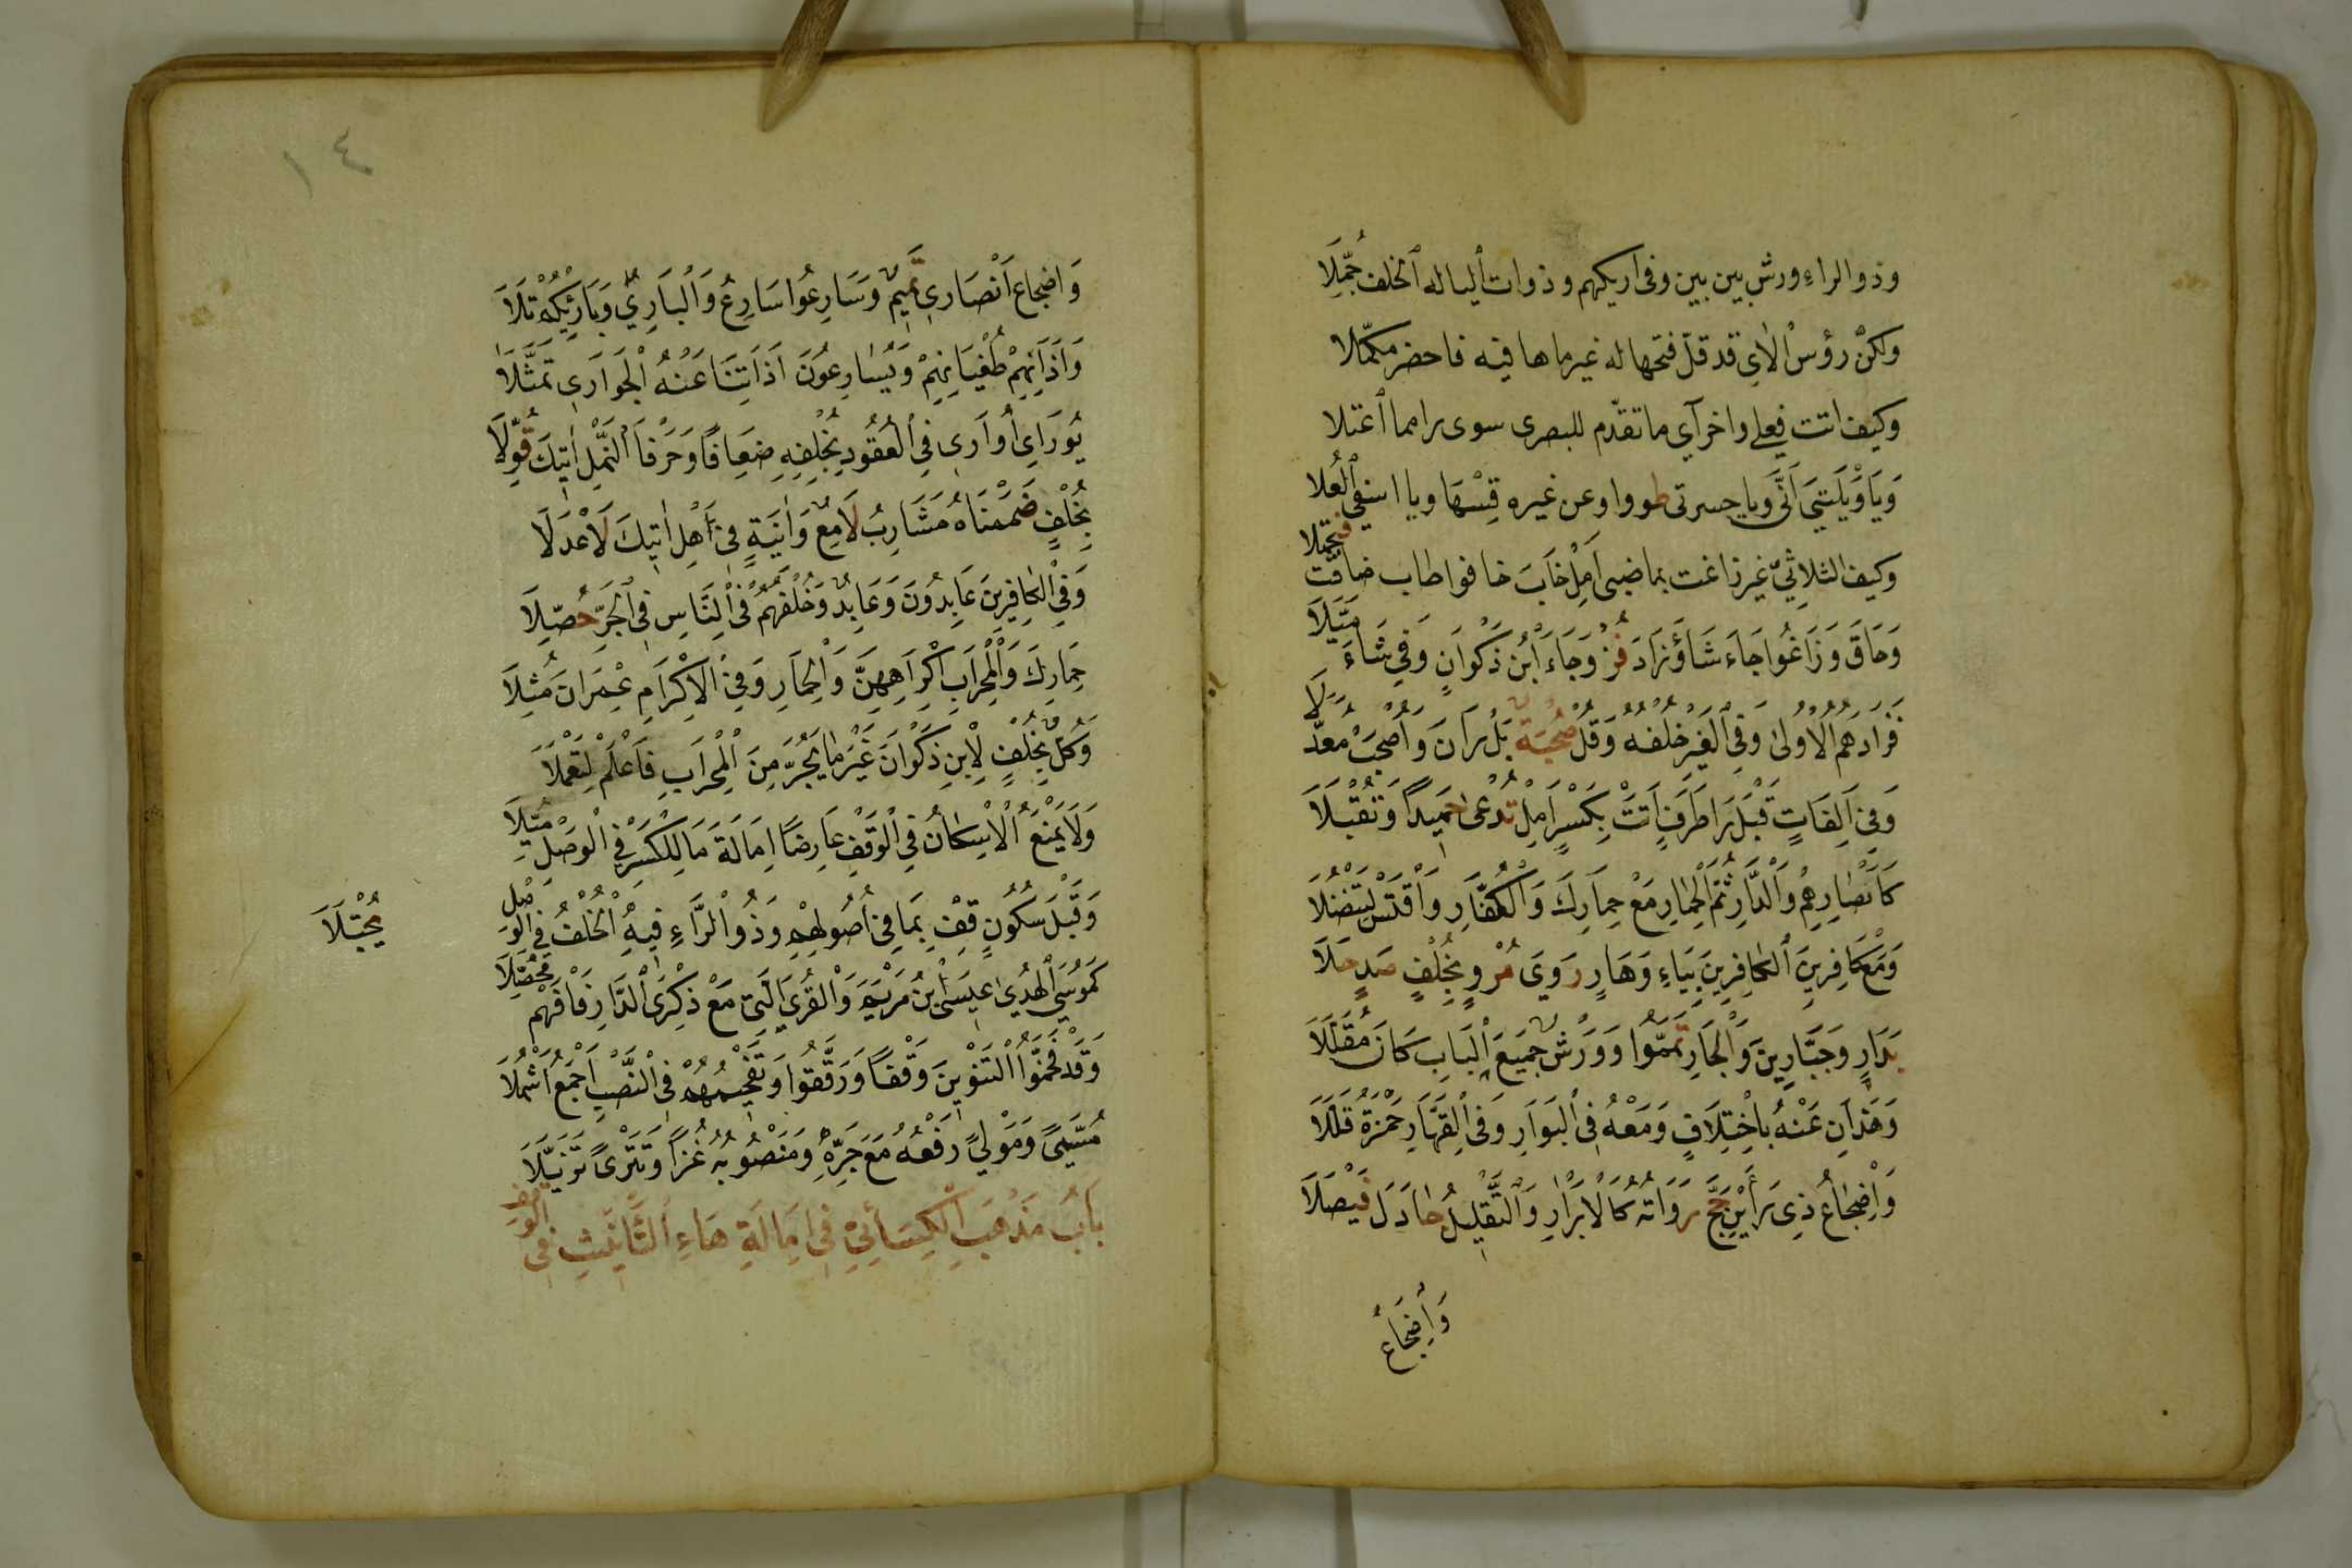 وذو الراء ورش بين بين وفى اريكهم وذوات اليا له الخلف جُمِّلَا
ولكن رؤس الاى قد قلّ فتحها له غير ما ها فيه فاحضر مكمّلا
وكيف اتت فعلى واخر آي ما تقدّم للبصرى سوى راهما اعتلا
وَيَا وَيْلَتَى أَنَّى ويا حسرتى طووا وعن غيره قِسْهَا ويا اسفى الْعُلا
وكيف الثلاثيّ غير زاغت بماضيى اَمِلْ خَابَ خافوا طاب ضاقت فتجملا
وَحَاقَ وَزَاغُوا جَاءَ شَاءَ وَزَادَ فُزْ وَجَاءَ ابْنُ ذَكْوَانٍ وَفِي شَاءَ مَيَّلَا
فَزَادَهُمُ الْاُولَى وَفِي الْغَيْرِ خُلْفُهُ وَقُلْ صُحْبَةٌ بَلْ رَانَ وَاصْحَبْ مُعَدَّلَا
وَفِي اَلِفَاتٍ قَبْلَ رَا طَرَفٍ اَتَتْ بِكَسْرٍ اَمِلْ تُدْعَى حَمِيدًا وَتُقْبَلَا
كَاَبْصَارِهِمْ وَالدَّارِ ثُمَّ الْحِمَارِ مَعْ حِمَارِكَ وَالْكُفَّارِ وَاقْتَسْ لِتَنْضُلَا
وَمَعْ كَافِرِينَ الْكَافِرِينَ بِيَاءِهِ وَهَارٍ رَوَى مُرْوٍ بِخُلْفٍ صَدٍ حَلَا
بَدَارٍ وَجَبَّارِينَ وَالْجَارِ تَمَّمُوا وَوَرْشٌ جَمِيعَ الْبَابِ كَانَ مُقَلِّلَا
وَهَذَانِ عَنْهُ بِاخْتِلَافٍ وَمَعْهُ فِي الْبَوَارِ وَفِي الْقَهَّارِ حَمْزَةُ قَلَّلَا
وَاِضْجَاعُ ذِى رَاءَيْنِ حَجَّ رَوَاتُهُ كَالْاَبْرَارِ وَالتَّقْلِيلُ جَادَلَ فَيْصَلَا
وَاِضْجَاعُ
١٤
وَاضْجَاعُ اَنْصَارِى تَمِيمٌ وَسَارِعُوا سَارِعُ وَالْبَارِيُّ وَبَارِئِكُمْ تَلَا
وَاٰذَانِهِمْ طُغْيَانِهِمْ وَيُسَارِعُونَ اٰذَانِنَا عَنْهُ الْجَوَارِى تَمَثَّلَا
يُوَارِى اُوَارِى فِي الْعُقُودِ بِخُلْفِهِ ضِعَافًا وَحَرْفَا النَّمْلِ اٰتِيكَ قُوِّلَا
بِخُلْفٍ ضَمَمْنَاهُ مَشَارِبُ لَامِعٌ وَاٰنِيَةٍ فِي هَلْ اَتِيكَ لَاَعْدَلَا
وَفِي الْكَافِرِينَ عَابِدُونَ وَعَابِدٌ وَخُلْفُهُمُ فِي النَّاسِ فِي الْجَرِّ حُصِّلَا
حِمَارِكَ وَالْمِحْرَابِ اِكْرَاهِهِنَّ وَالْحِمَارِ وَفِي الْاِكْرَامِ عِمْرَانَ مُثِّلَا
وَكُلٌّ بِخُلْفٍ لِابْنِ ذَكْوَانَ غَيْرَ مَا يُجَرُّ مِنَ الْمِحْرَابِ فَاعْلَمْ لِتَعْمَلَا
وَلَا يَمْنَعُ الْاِسْكَانُ فِي الْوَقْفِ عَارِضًا اِمَالَةَ مَا لِلْكَسْرِ فِي الْوَصْلِ مُيِّلَا
وَقَبْلَ سُكُونٍ قِفْ بِمَا فِي اُصُولِهِمْ وَذُو الرَّاءِ فِيهِ الْخُلْفُ فِي الْوَصْلِ يُجْتَلَا
كَمُوسَى الْهُدَى عِيسَى ابْنُ مَرْيَمَ وَالْقُرَى الَّتِى مَعْ ذِكْرَى الدَّارِ فَافْهَمْ مُحَصِّلَا
وَقَدْ فَخَّمُوا التَّنْوِينَ وَقْفًا وَرَقَّقُوا وَتَفْخِيمُهُمْ فِي النَّصْبِ اَجْمَعُ اَشْمُلَا
مُسَمًّى وَمَوْلًى رَفْعُهُ مَعَ جَرِّهِ وَمَنْصُوبُهُ غُزًّا وَتَتْرًى تَزَيَّلَا
بَابُ مَذْهَبِ الْكِسَائِيِّ فِي اِمَالَةِ هَاءِ التَّانِيثِ فِي الْوَقْفِ